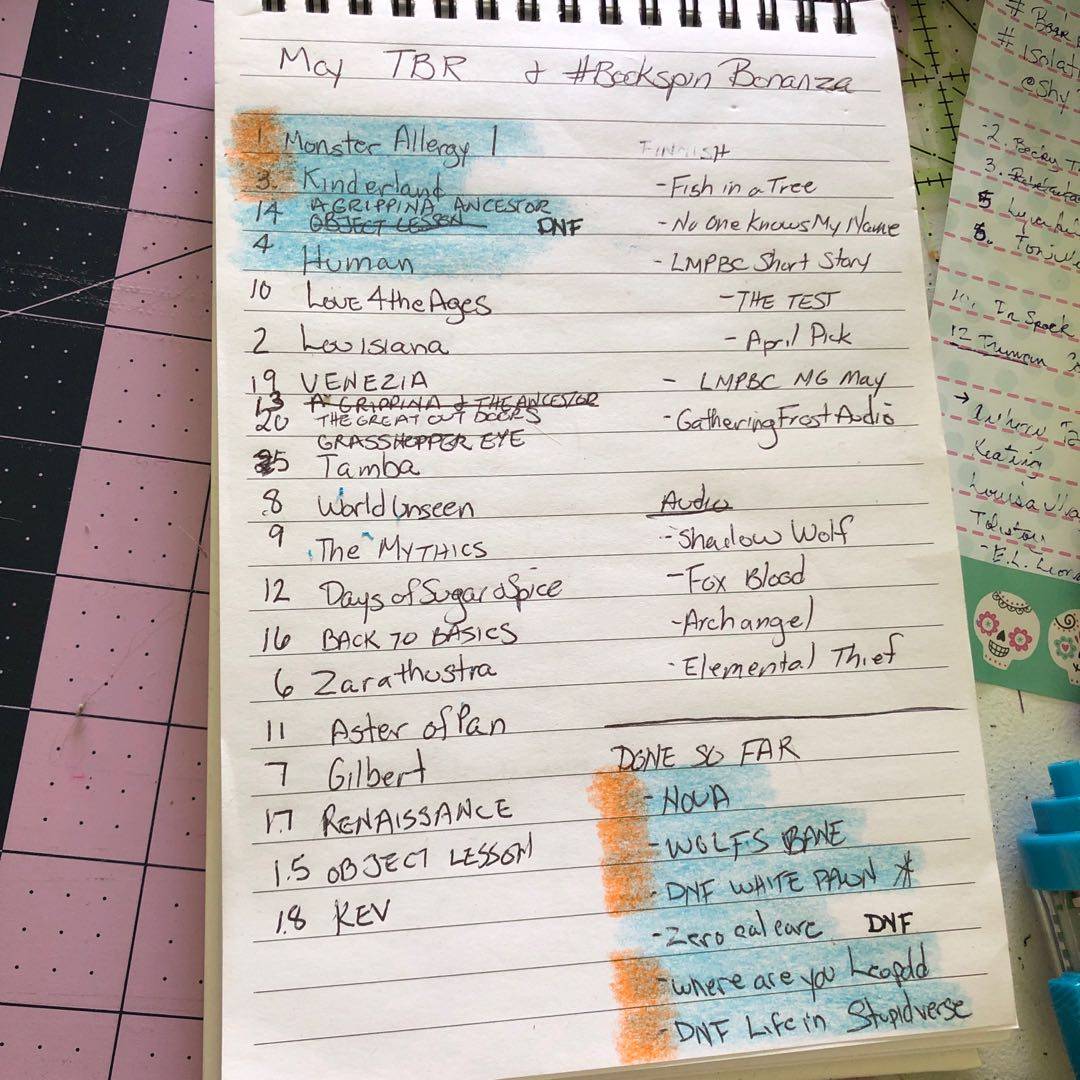 May TBR & #Bookspin Bonanza
1. Monster Allergy 1
3. Kinderland
14 AGRIPPINA ANCESTOR
OBJECT LESSON DNF
4 Human
10 Love 4 the Ages
2 Louisiana
19 VENEZIA
13 A GRIPPINA & THE ANCESTOR
20 THE GREAT OUT DOORS
GRASSHOPPER EYE
5 Tamba
8 World Unseen
9 The MYTHICS
12 Days of Sugar & Spice
16 BACK TO BASICS
6 Zarathustra
11 Aster of Pan
7 Gilbert
17 RENAISSANCE
15 OBJECT LESSON
18 REV
FINISH
- Fish in a Tree
- No One Knows My Name
- LMPBC Short Story
- THE TEST
- April Pick
- LMPBC MG May
- Gathering Frost Audio
Audio
- Shadow Wolf
- Fox Blood
- Archangel
- Elemental Thief
DONE SO FAR
- NOVA
- WOLFS BANE
- DNF WHITE PAWN *
- Zero DNF
- where are you Leopold
- DNF Life in Stupidverse
# Isolati
@Shy
2. Becky T
3.
8.
10. In Spook
12 Truman
Keating
Louisa
- E.L.